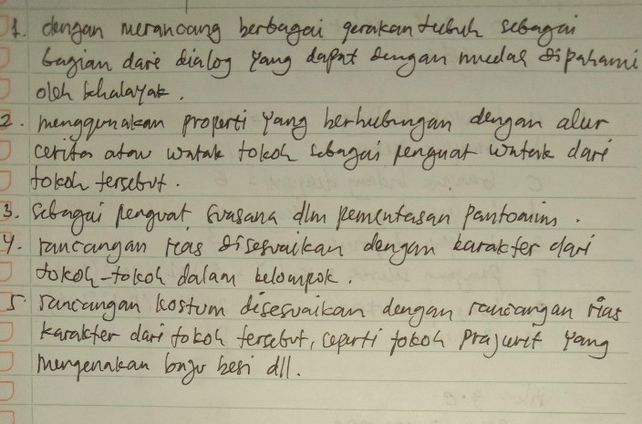 1. dengan merancang berbagai gerakan tubuh sebagai
bagian dari dialog yang dapat dengan mudah dipahami
oleh khalayak.
2. menggunakan properti yang berhubungan dengan alur
cerita atau watak tokoh sebagai penguat watak dari
tokoh tersebut.
3. Sebagai penguat suasana dlm pementasan pantomim.
4. rancangan rias disesuaikan dengan karakter dari
tokoh-tokoh dalam kelompok.
5. rancangan kostum disesuaikan dengan rancangan rias
karakter dari tokoh tersebut, seperti tokoh prajurit yang
mengenakan baju besi dll.